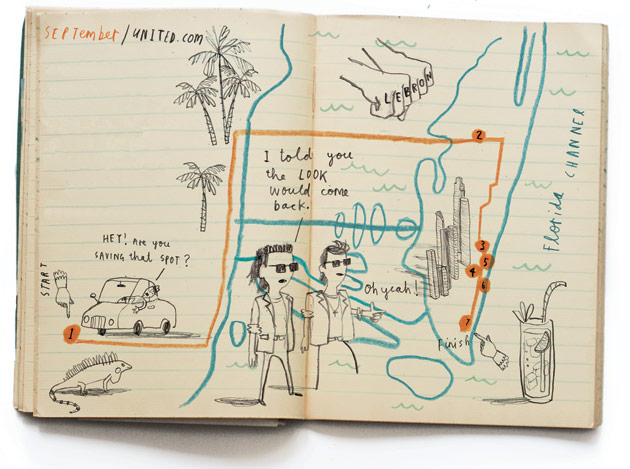 SEPTEMBER/UNITED.COM
LEBRON
2
I told you
the LOOK
would come
back.
Florida CHANNER
HEY! Are you
SAVING that SPOT?
START
1
3
4
5
6
Oh yeah!
7
Finish